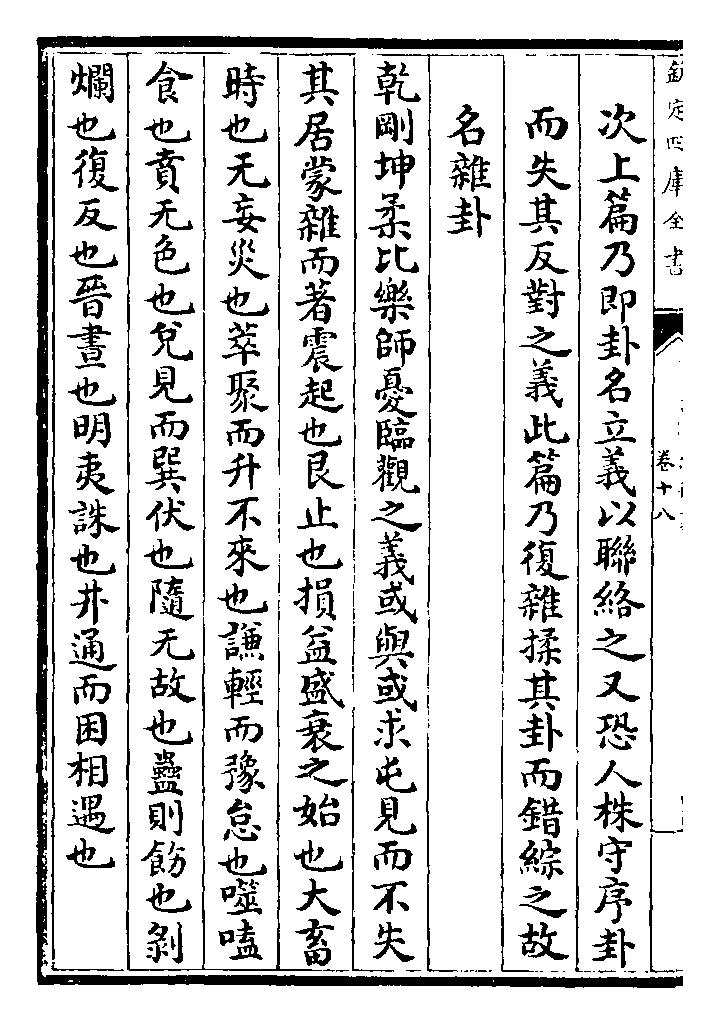 欽定四庫全書
卷十八
次上篇乃即卦名立義以聯絡之又恐人株守序卦
而失其反對之義此篇乃復雜揉其卦而錯綜之故
名雜卦
乾剛坤柔比樂師憂臨觀之義或與或求屯見而不失
其居蒙雜而著震起也艮止也損益盛衰之始也大畜
時也无妄災也萃聚而升不來也謙輕而豫怠也噬嗑
食也賁无色也兌見而巽伏也隨无故也蠱則飭也剝
爛也復反也晉晝也明夷誅也井通而困相遇也